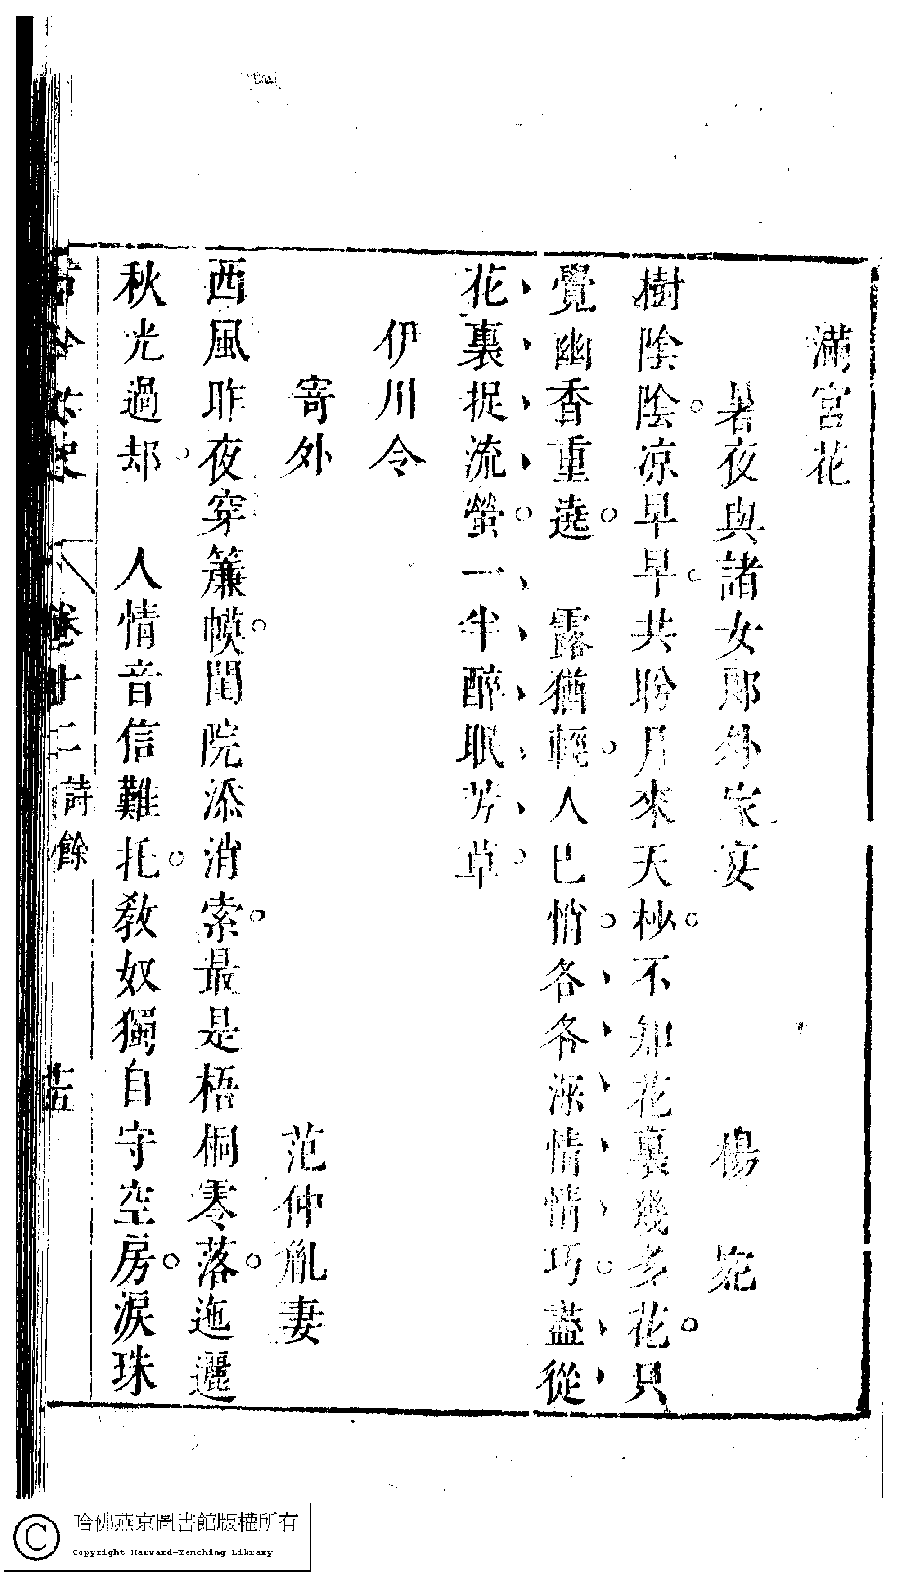 滿宮花
暑夜與諸女郎外家宴 楊宛
樹陰陰凉早早共盼月來天杪不知花裏幾多花只
覺幽香重遶 露猶輕人已悄各各深情情巧盡從
花裏捉流螢一半醉眠芳草
伊川令
寄外 范仲胤妻
西風昨夜穿簾幙閨院添消索最是梧桐零落迤邐
秋光過却 人情音信難托教奴獨自守空房淚珠
卷十二 詩餘 十五
哈佛燕京圖書館版權所有
Copyright Harvard-Yenching Library